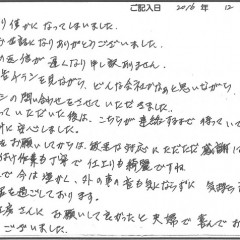 ご記入日 2016 年 12
り僅かになってしまいました。
お世話になりありがとうございました。
の返信が遅くなり申し訳ありません。
チラシを見ながら、どんな会社かなと思いながら、
の問い合わせをさせていただきました。
っていただいた後は、こちらが連絡するまで待っていて
に安心しました。
お願いしてからは、敏速な対応にただただ感謝に
付け作業も丁寧で仕上りも綺麗ですね
で今は暖かく、外の車の音も気にならずに 気持ち
を過ごしております。
店さんにお願いして良かったと夫婦で喜んでお
ございました。